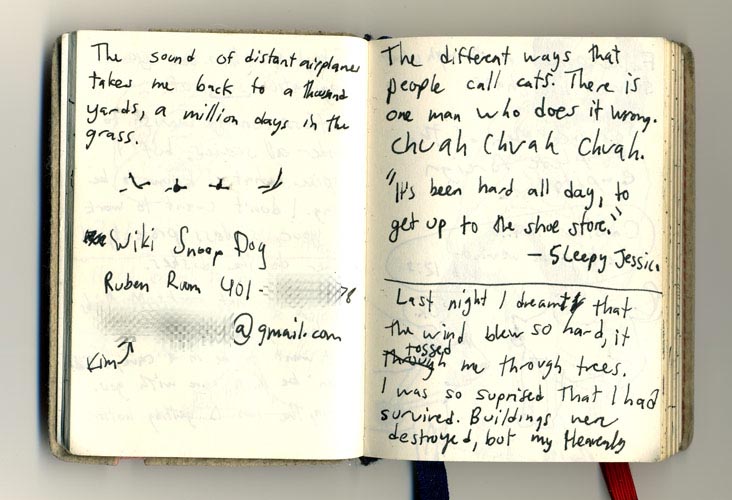 The sound of distant airplanes
takes me back to a thousand
yards, a million days in the
grass.
Wiki Snoop Dog
Ruben Rum 401-
@gmail.com
Kim
The different ways that
people call cats. There is
one man who does it wrong.
Chuah Chuah Chuah.
"It's been hard all day, to
get up to the shoe store."
- Sleepy Jessica
Last night I dreamt that
the wind blew so hard, it
tossed
me through trees.
I was so suprised that I had
survived. Buildings were
destroyed, but my Heavenly